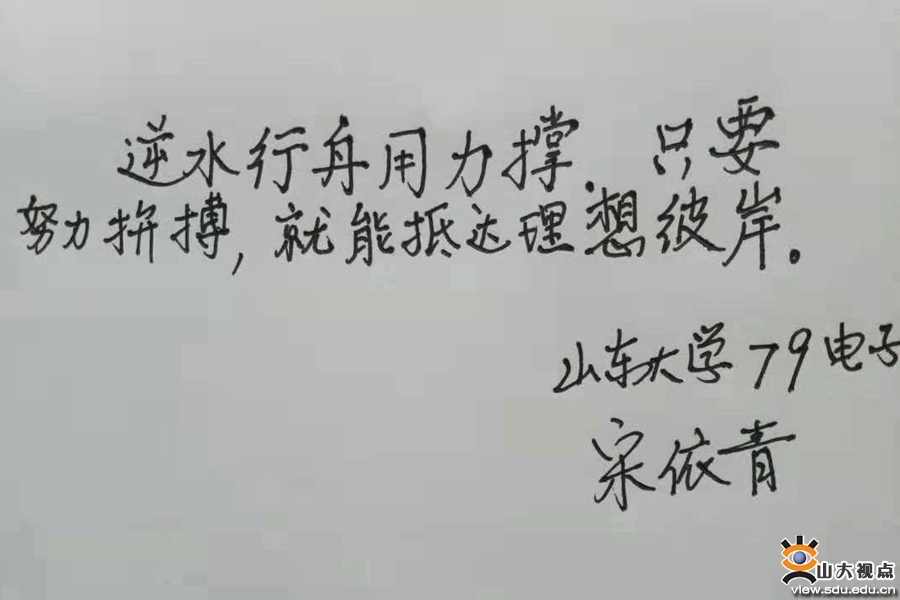 逆水行舟用力撑.只要
努力拚搏,就能抵达理想彼岸。
山东大学79电子
宋依青
山大视点
view.sdu.edu.cn